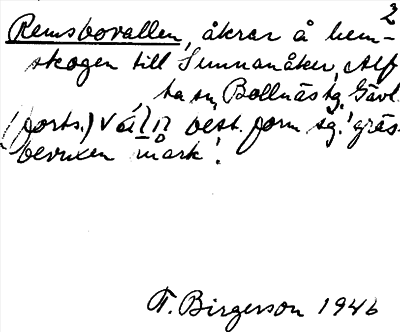 2
Remsbovallen, åkrar å hem-
skogen till Sunnanåker, Alf
ta sn, Bollnäs tg. Gävl.
(forts.) best. form sg. 'gräs
bevuxen mark'.
T. Birgerson 1946